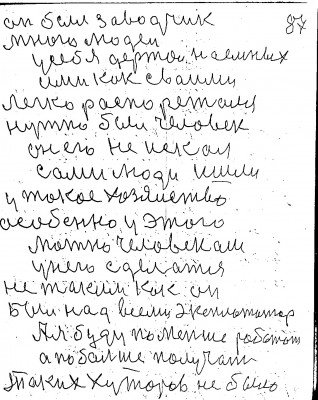 он был заводчик
87
много людеи
у себя держал наемных
ими как сваими
легко распо режался
нужно был человек
он его не искал
сами люди шли
у такое хозяиство
особенно у этого
можно человекам
у него сделатся
не таким как он
был над всеми эксплотатор
Я буду поменше работат
а поболше получат
Таких хуторов не было